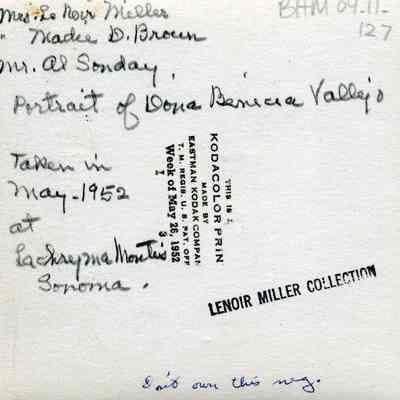 Mrs. Le Noir Miller
" Madie D. Brown
Mr. Al Sonday,
Portrait of Dona Benicia Vallejo
Taken in
May-1952
at
Lachryma Montis
Sonoma.
BHM 09.11-
127
THIS IS A
KODACOLOR PRIN
MADE BY
EASTMAN KODAK COMPAN
T. M. REGIS. U. S. PAT. OFF
Week of May 26, 1952
3
I
LENOIR MILLER COLLECTION
Don't own this neg.